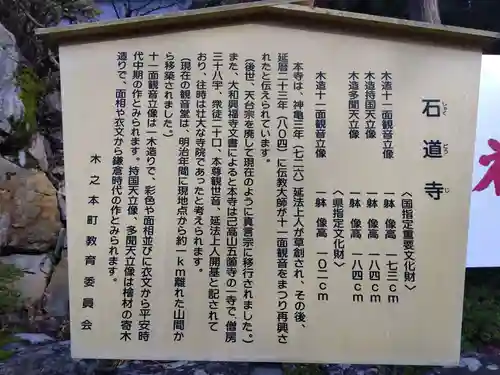 石道寺
しゃくどうじ
〈国指定重要文化財〉
木造十一面観音立像 一躯 像高 一七三cm
木造持国天立像 一躯 像高 一八四cm
木造多聞天立像 一躯 像高 一八四cm
〈県指定文化財〉
木造十一面観音立像 一躯 像高 一〇二cm
本寺は、神亀三年（七二六）延法上人が草創され、その後、
延暦二十三年（八〇四）に伝教大師が十一面観音をまつり再興さ
れたと伝えられています。
（後世、天台宗を廃して現在のように真言宗に移行されました。）
また、大和興福寺文書によると本寺は己高山五箇寺の一寺で、僧房
三十八宇、衆徒二十口、本尊観世音、延法上人開基と記されて
おり、往時は壮大な寺院であったと考えられます。
（現在の観音堂は、明治年間に現地点から約一km離れた山間か
ら移築されました。）
十一面観音立像は一木造りで、彩色や面相並びに衣文から平安時
代中期の作とみられます。持国天立像、多聞天立像は檜材の寄木
造りで、面相や衣文から鎌倉時代の作とみられます。
木之本町教育委員会